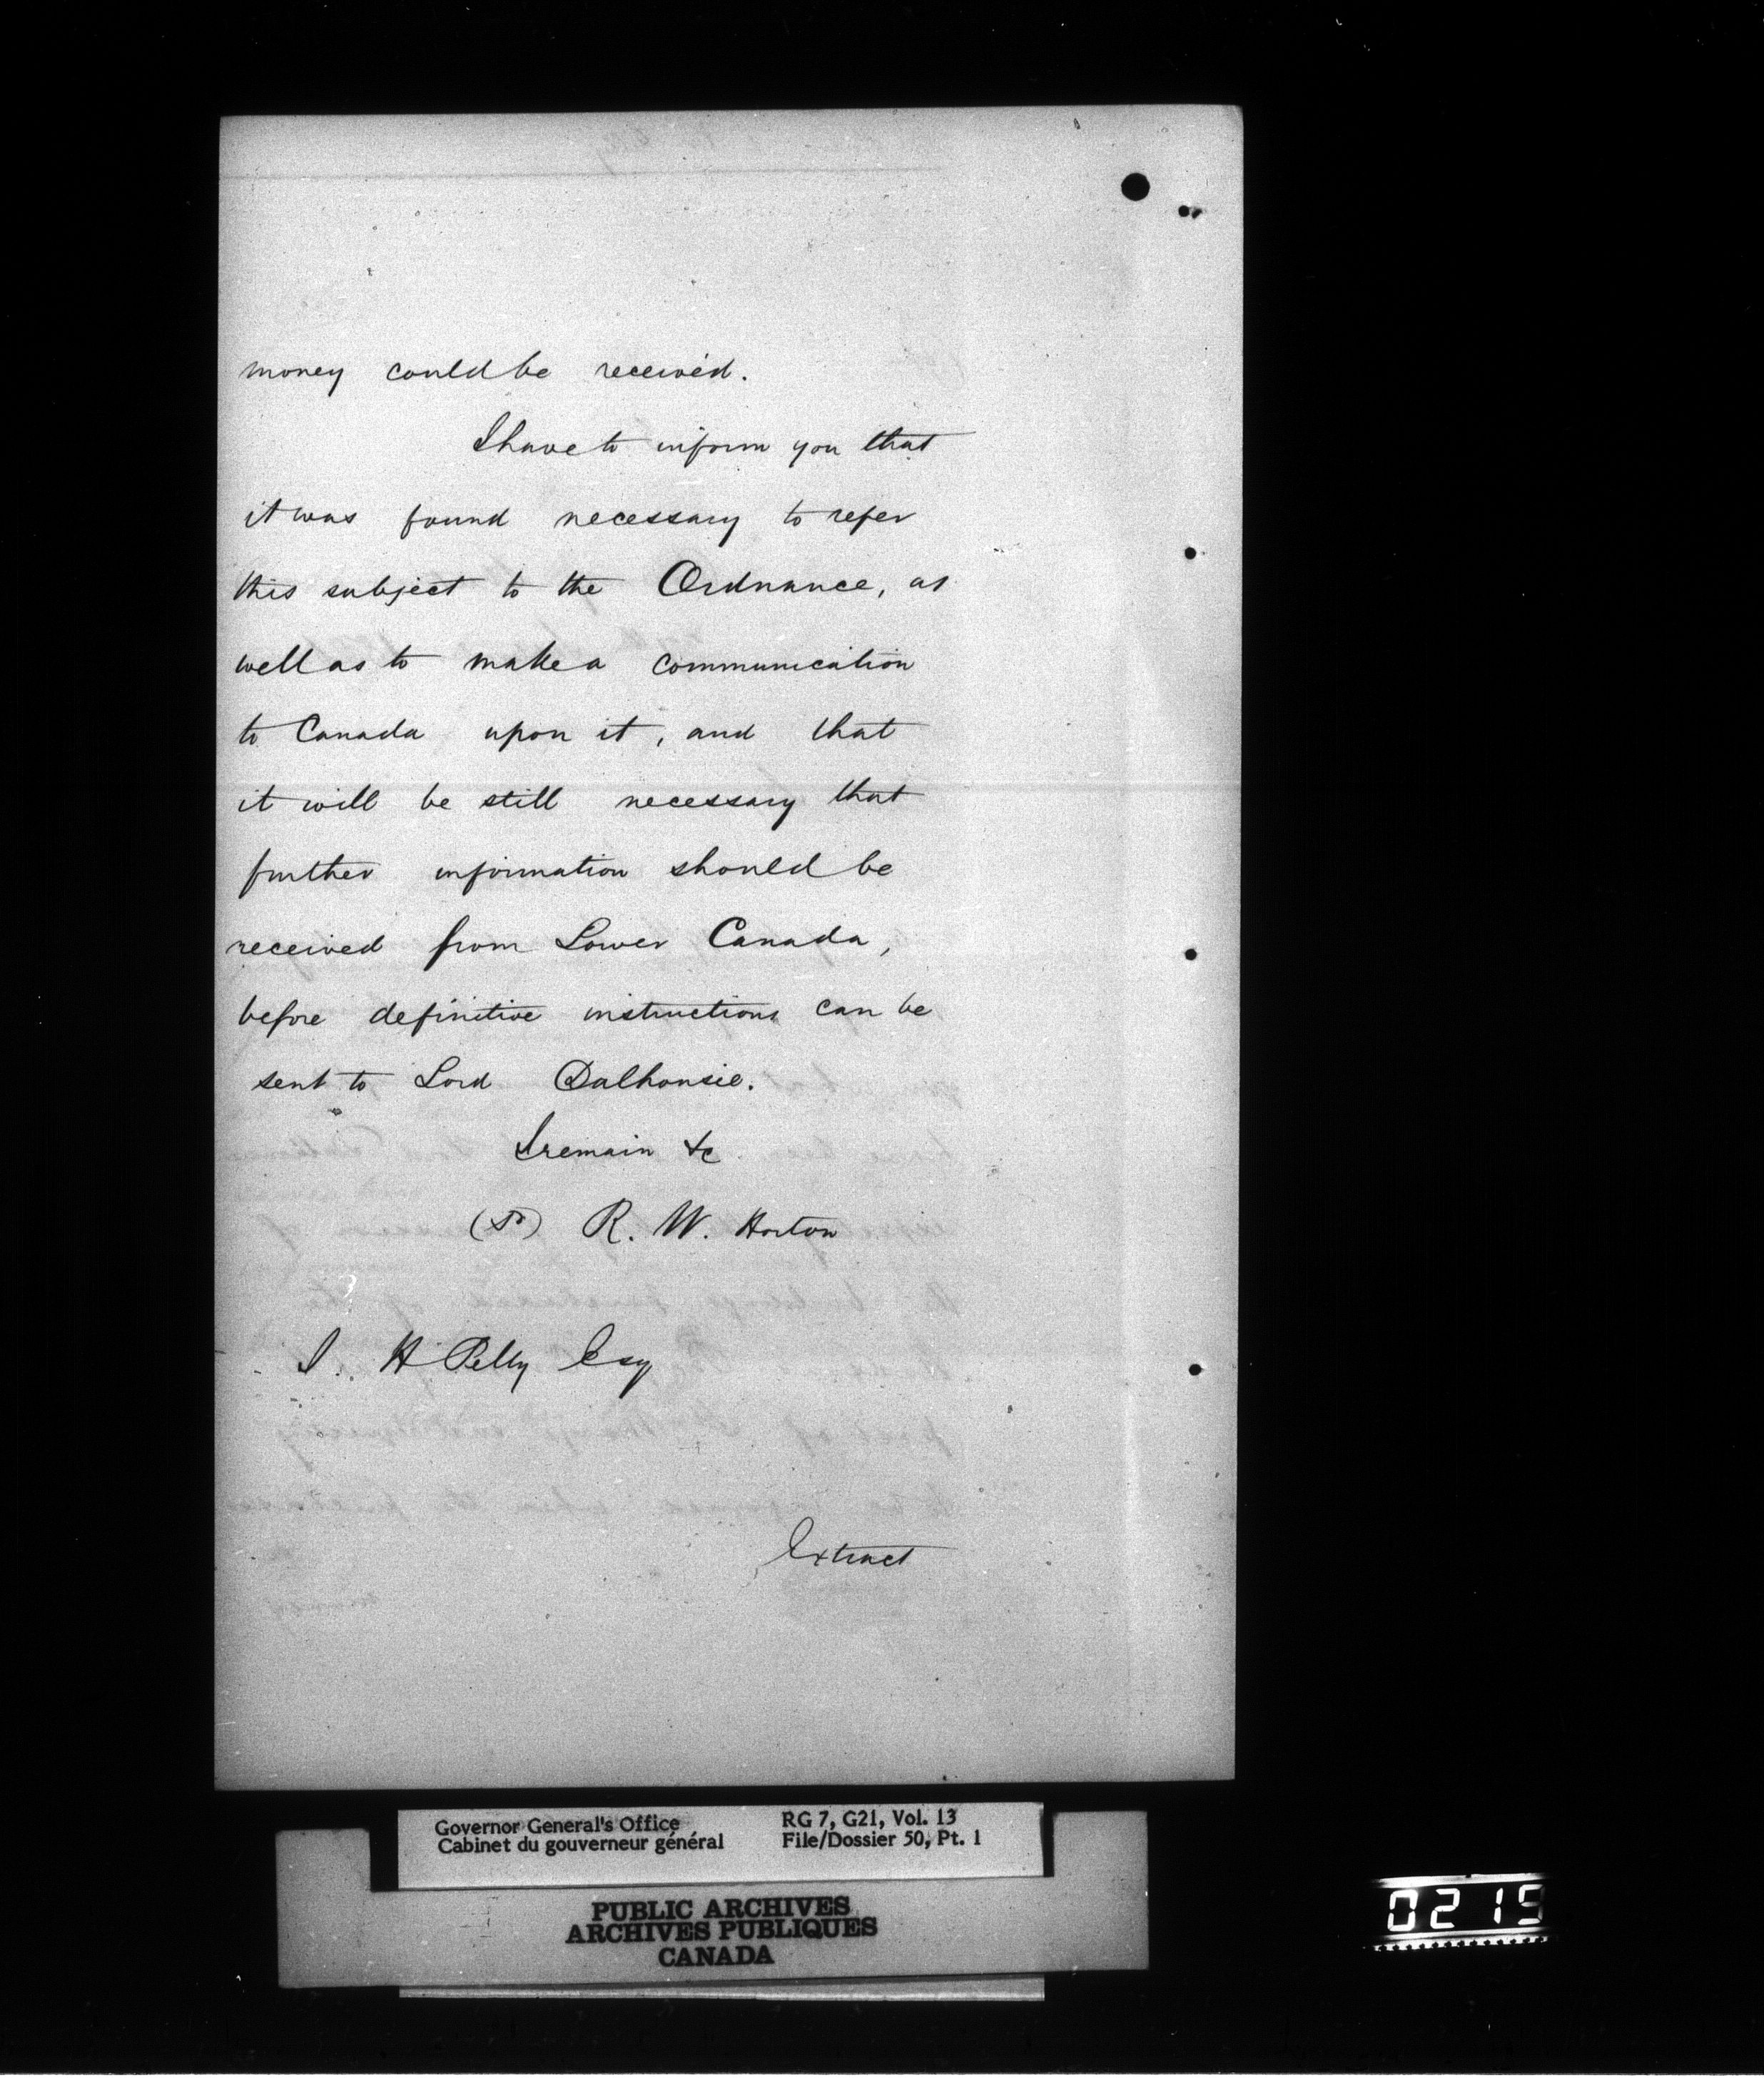 money could be received.
I have to inform you that
it was found necessary to refer
this subject to the Ordnance, as
well as to make a communication
to Canada upon it, and that
it will be still necessary that
further information should be
received from Lower Canada,
before definitive instructions can be
sent to Lord Dalhousie.
I remain &c
(Sd) R. W. Horton
J. H Pelly Esq
Extract
Governor General's Office RG 7, G21, Vol. 13
Cabinet du gouverneur général File/Dossier 50, Pt. 1
PUBLIC ARCHIVES
ARCHIVES PUBLIQUES
CANADA
0215